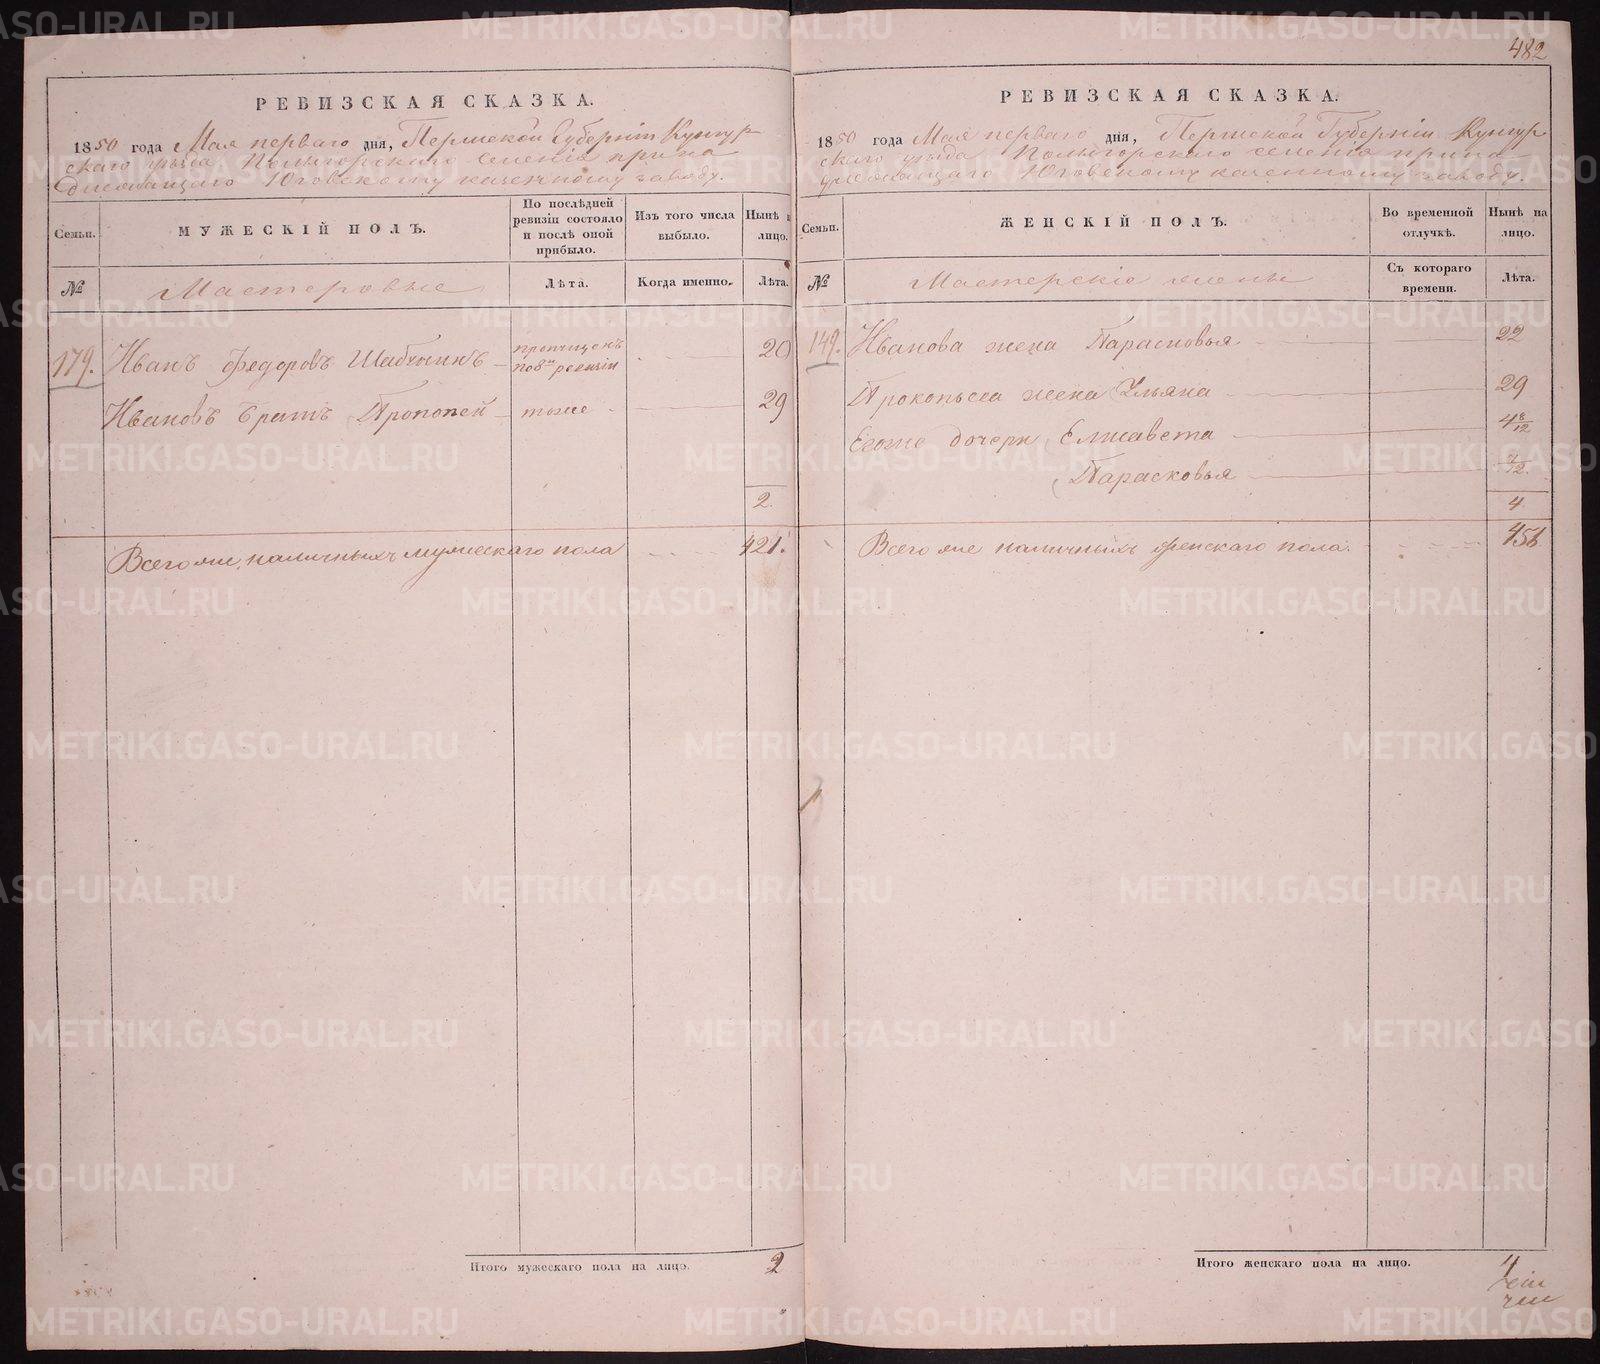 482
РЕВИЗСКАЯ СКАЗКА.
1850 года Мая перваго дня, Пермской Губерніи Кунгур
скаго уѣзда селенія прина
длежащаго Юговскому казенному заводу.
Семьи.
МУЖЕСКІЙ ПОЛЪ.
По послѣдней ревизіи состояло и послѣ оной прибыло.
Изъ того числа выбыло.
Нынѣ на лицо.
№
Мастеровые
Лѣта.
Когда именно.
Лѣта.
179. Иванъ Федоровъ пропущенъ по 8й ревизіи 20
Ивановъ братъ Прокопей тоже 29
2.
Всего же наличныхъ мужескаго пола 421.
Итого мужескаго пола на лицо. 2
РЕВИЗСКАЯ СКАЗКА.
1850 года Мая перваго дня, Пермской Губерніи Кунгур
скаго уѣзда селенія прина
длежащаго Юговскому казенному заводу.
Семьи.
ЖЕНСКІЙ ПОЛЪ.
Во временной отлучкѣ.
Нынѣ на лицо.
№
Мастерскіе жены
Съ котораго времени.
Лѣта.
149. Иванова жена Парасковья 22
Прокопьева жена Ульяна 29
Егоже дочери Елисавета 4 8/12
Парасковья 7/12.
4
Всего же наличныхъ женскаго пола.
Итого женскаго пола на лицо. 4
METRIKI.GASO-URAL.RU